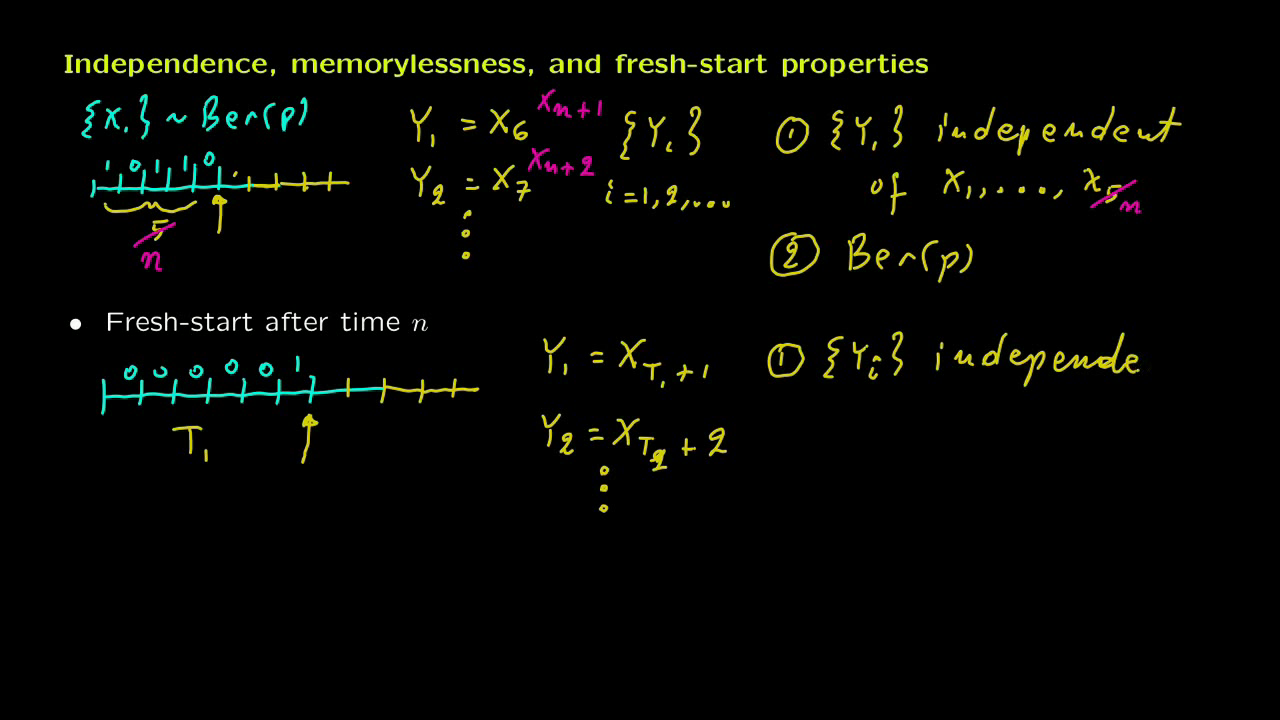 Independence, memorylessness, and fresh-start properties
{Xᵢ} ~ Ber(p)
1 0 1 1 0
5
n
Y₁ = X₆ Xₙ₊₁
Y₂ = X₇ Xₙ₊₂
⋮
{Yᵢ}
i = 1, 2, ...
① {Yᵢ} independent
of X₁, ..., X₅ n
② Ber(p)
• Fresh-start after time n
0 0 0 0 0 1
T₁
Y₁ = X_{T₁ + 1}
Y₂ = X_{T₂ + 2}
⋮
① {Yᵢ} independe